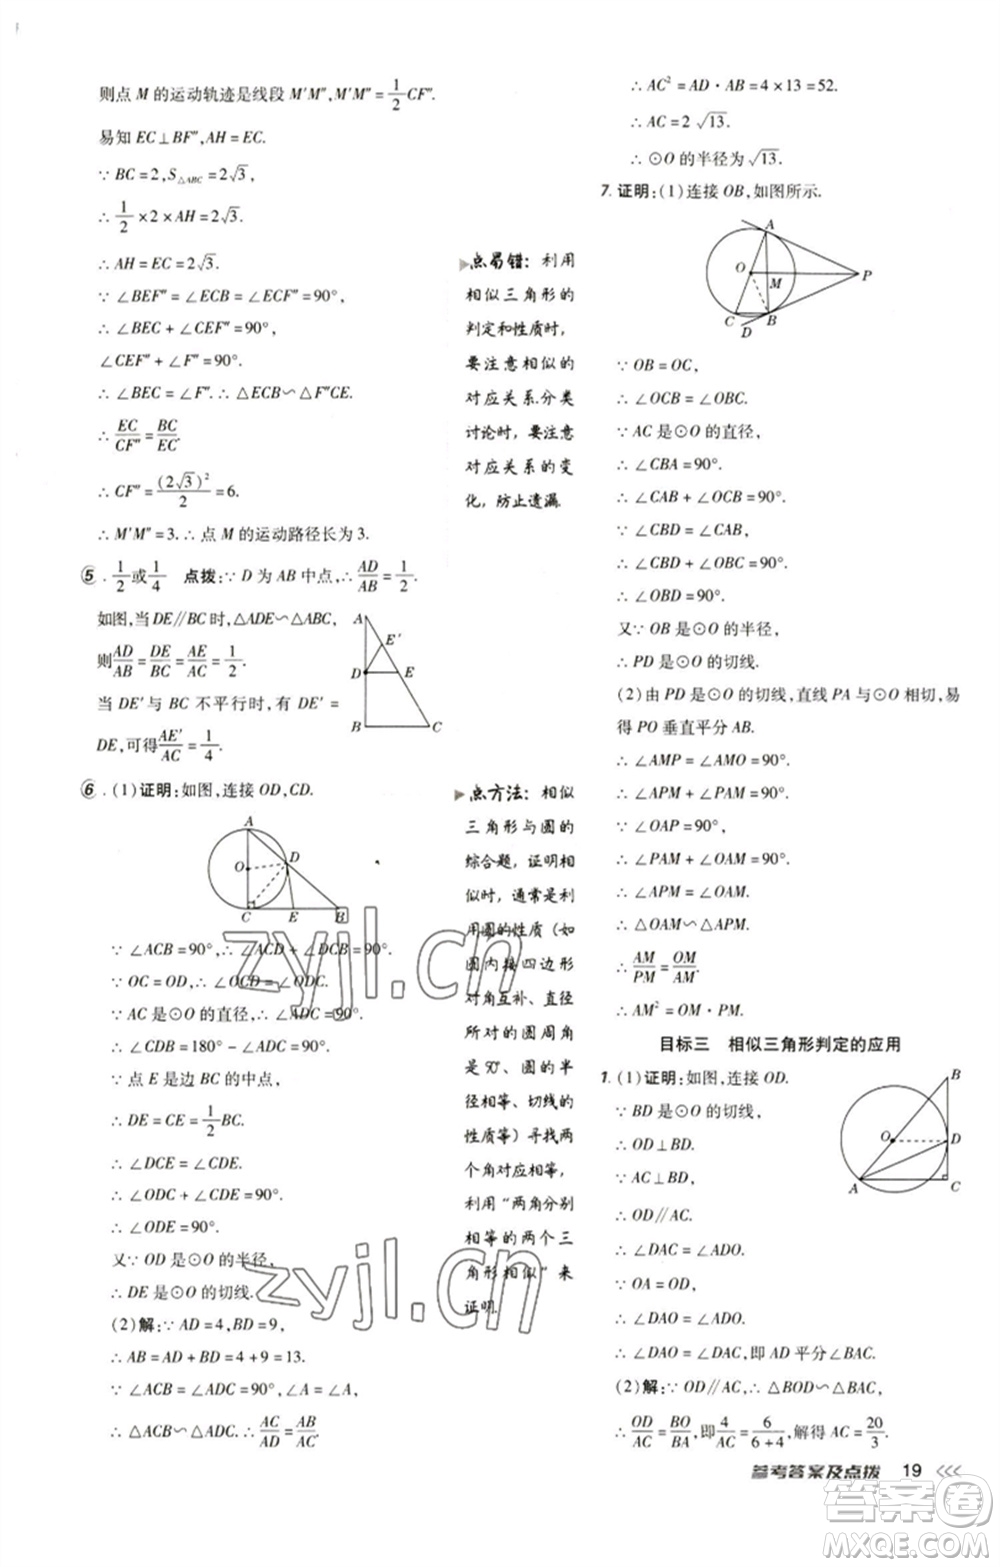 则点 M 的运动轨迹是线段 M′M″,M′M″=1/2CF″.
易知 EC⊥BF″,AH=EC.
∵ BC=2,S△ABC=2√3,
∴ 1/2×2×AH=2√3.
∴ AH=EC=2√3.
∵ ∠BEF″=∠ECB=∠ECF″=90°,
∴ ∠BEC+∠CEF″=90°,
∠CEF″+∠F″=90°.
∴ ∠BEC=∠F″.∴ △ECB∽△F″CE.
∴ EC/CF″=BC/EC.
∴ CF″=(2√3)²/2=6.
∴ M′M″=3.∴ 点 M 的运动路径长为 3.
5. 1/2或1/4 点拨:∵ D 为 AB 中点,∴ AD/AB=1/2.
如图,当 DE∥BC 时,△ADE∽△ABC,
则AD/AB=DE/BC=AE/AC=1/2.
当 DE′与 BC 不平行时,有 DE′=
DE,可得AE′/AC=1/4.
A
E′
D
E
B
C
6. (1)证明:如图,连接 OD,CD.
A
D
O
C
E
B
∵ ∠ACB=90°,∴ ∠ACD+∠DCB=90°.
∵ OC=OD,∴ ∠OCD=∠ODC.
∵ AC 是⊙O 的直径,∴ ∠ADC=90°.
∴ ∠CDB=180°−∠ADC=90°.
∵ 点 E 是边 BC 的中点,
∴ DE=CE=1/2BC.
∴ ∠DCE=∠CDE.
∴ ∠ODC+∠CDE=90°.
∴ ∠ODE=90°.
又∵ OD 是⊙O 的半径,
∴ DE 是⊙O 的切线.
(2)解:∵ AD=4,BD=9,
∴ AB=AD+BD=4+9=13.
∵ ∠ACB=∠ADC=90°,∠A=∠A,
∴ △ACB∽△ADC.∴ AC/AD=AB/AC.
点易错:利用
相似三角形的
判定和性质时,
要注意相似的
对应关系.分类
讨论时,要注意
对应关系的变
化,防止遗漏.
点方法:相似
三角形与圆的
综合题,证明相
似时,通常是利
用圆的性质(如
圆内接四边形
对角互补、直径
所对的圆周角
是90°、圆的半
径相等、切线的
性质等)寻找两
个角对应相等,
利用“两角分别
相等的两个三
角形相似”来
证明.
∴ AC²=AD·AB=4×13=52.
∴ AC=2√13.
∴ ⊙O 的半径为√13.
7. 证明:(1)连接 OB,如图所示.
A
O
M
P
C
D
B
∵ OB=OC,
∴ ∠OCB=∠OBC.
∵ AC 是⊙O 的直径,
∴ ∠CBA=90°.
∴ ∠CAB+∠OCB=90°.
∵ ∠CBD=∠CAB,
∴ ∠CBD+∠OBC=90°.
∴ ∠OBD=90°.
又∵ OB 是⊙O 的半径,
∴ PD 是⊙O 的切线.
(2)由 PD 是⊙O 的切线,直线 PA 与⊙O 相切,易
得 PO 垂直平分 AB.
∴ ∠AMP=∠AMO=90°.
∴ ∠APM+∠PAM=90°.
∵ ∠OAP=90°,
∴ ∠PAM+∠OAM=90°.
∴ ∠APM=∠OAM.
∴ △OAM∽△APM.
∴ AM/PM=OM/AM.
∴ AM²=OM·PM.
目标三 相似三角形判定的应用
1. (1)证明:如图,连接 OD.
∵ BD 是⊙O 的切线,
∴ OD⊥BD.
∵ AC⊥BD,
∴ OD∥AC.
∴ ∠DAC=∠ADO.
∵ OA=OD,
∴ ∠DAO=∠ADO.
B
O
D
A
C
∴ ∠DAO=∠DAC,即 AD 平分∠BAC.
(2)解:∵ OD∥AC,∴ △BOD∽△BAC,
∴ OD/AC=BO/BA,即4/AC=6/(6+4),解得 AC=20/3.
参考答案及点拨 19
zyjl.cn
zyjl.cn
答案圈
MXQE.COM